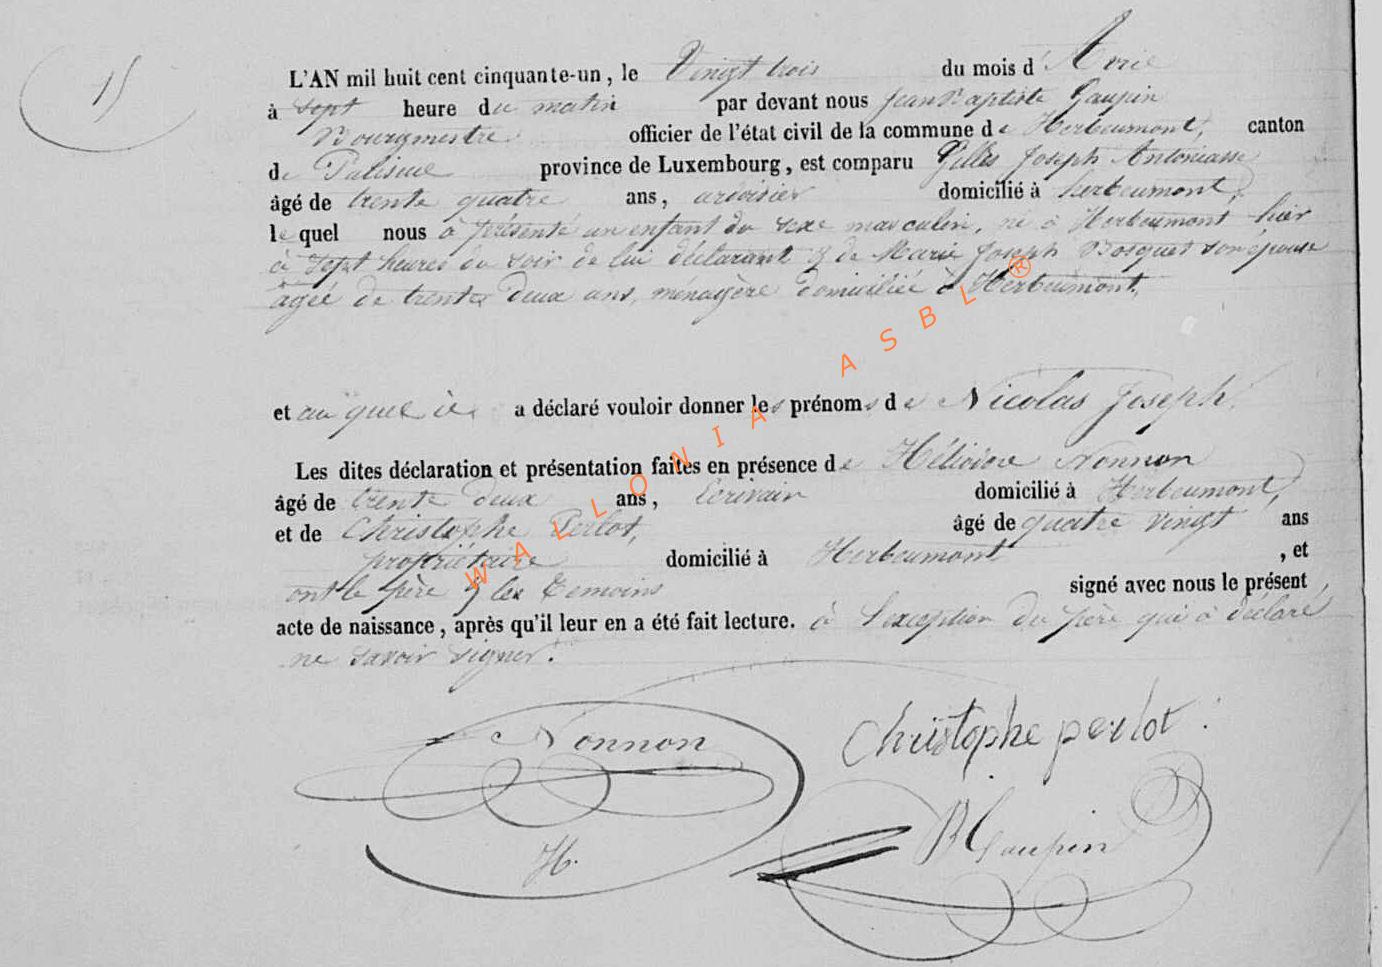 15
L'AN mil huit cent cinquante-un, le Vingt trois du mois d'Avril
à sept heure du matin par devant nous Jean Baptiste Gaupin
Bourgmestre officier de l'état civil de la commune de Herbeumont, canton
de Paliseul province de Luxembourg, est comparu Gilles Joseph Antoniasse
âgé de trente quatre ans, ardoisier domicilié à herbeumont,
lequel nous à présenté un enfant du sexe masculin, né à Herbeumont hier
à sept heures du soir de lui déclarant & de Marie Joseph Bosquet son épouse
agée de trente deux ans, ménagère domiciliée à Herbeumont,
et au quel il a déclaré vouloir donner les prénoms de Nicolas Joseph.
Les dites déclaration et présentation faites en présence de Héliodore Nonnon
âgé de trente deux ans, Ecrivain domicilié à Herbeumont,
et de Christophe Perlot, âgé de quatre vingt ans
propriétaire domicilié à Herbeumont, et
ont le père & les temoins signé avec nous le présent
acte de naissance, après qu'il leur en a été fait lecture. à l'exception du père qui à déclaré
ne savoir signer.
Nonnon
H.
Christophe perlot
B Gaupin
WALLONIA ASBL ®